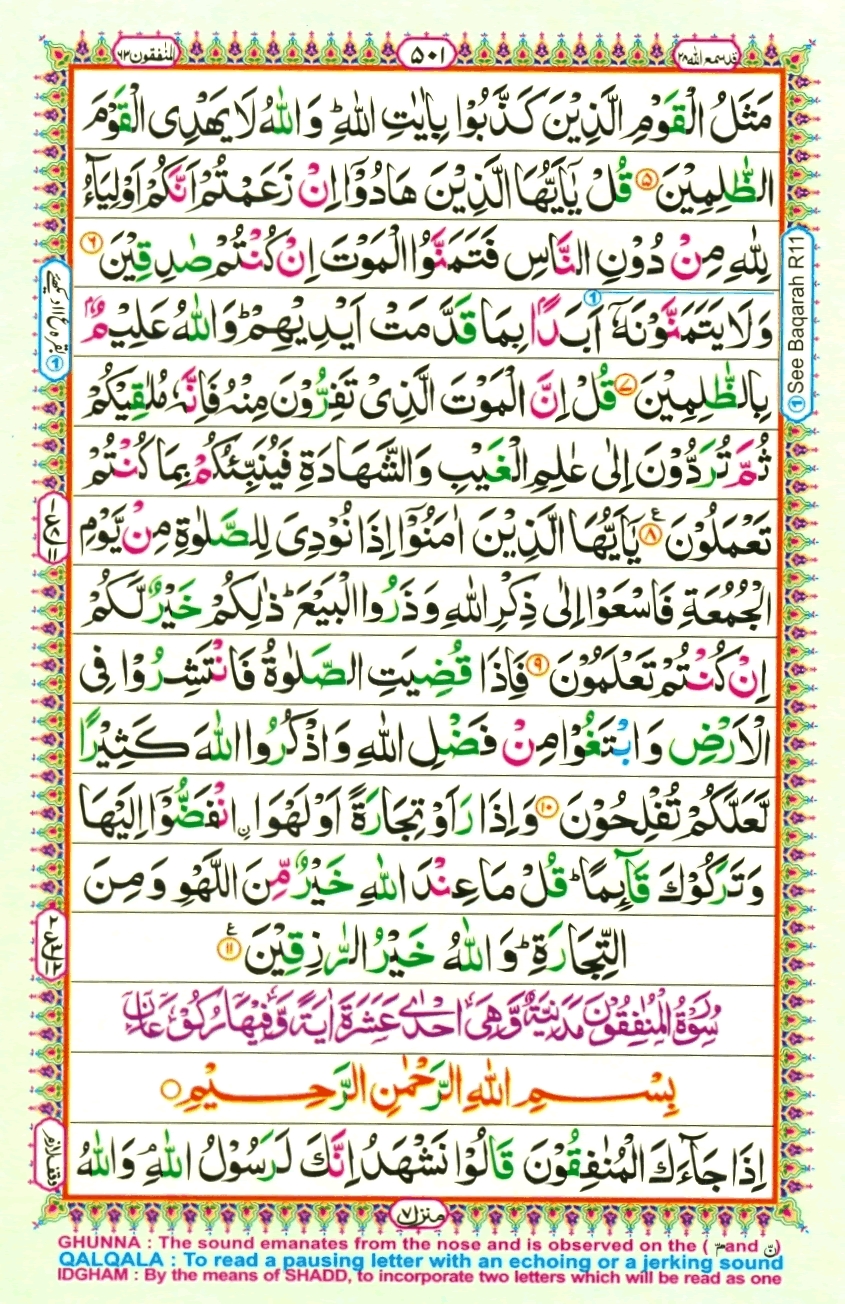 قد سمع الله ٢٨
٥٠١
المنٰفقون ٦٣
مَثَلُ الْقَوْمِ الَّذِيْنَ كَذَّبُوْا بِاٰيٰتِ اللّٰهِ ؕ وَ اللّٰهُ لَا يَهْدِى الْقَوْمَ
الظّٰلِمِيْنَ ۵ قُلْ يٰۤاَيُّهَا الَّذِيْنَ هَادُوْۤا اِنْ زَعَمْتُمْ اَنَّكُمْ اَوْلِيَآءُ
لِلّٰهِ مِنْ دُوْنِ النَّاسِ فَتَمَنَّوُا الْمَوْتَ اِنْ كُنْتُمْ صٰدِقِيْنَ ۶
وَ لَا يَتَمَنَّوْنَهٗۤ اَبَدًۢا بِمَا قَدَّمَتْ اَيْدِيْهِمْ ؕ وَ اللّٰهُ عَلِيْمٌۢ
بِالظّٰلِمِيْنَ ۷ قُلْ اِنَّ الْمَوْتَ الَّذِىْ تَفِرُّوْنَ مِنْهُ فَاِنَّهٗ مُلٰقِيْكُمْ
ثُمَّ تُرَدُّوْنَ اِلٰى عٰلِمِ الْغَيْبِ وَ الشَّهَادَةِ فَيُنَبِّئُكُمْ بِمَا كُنْتُمْ
تَعْمَلُوْنَ ۸ ع يٰۤاَيُّهَا الَّذِيْنَ اٰمَنُوْۤا اِذَا نُوْدِىَ لِلصَّلٰوةِ مِنْ يَّوْمِ
الْجُمُعَةِ فَاسْعَوْا اِلٰى ذِكْرِ اللّٰهِ وَ ذَرُوا الْبَيْعَ ؕ ذٰلِكُمْ خَيْرٌ لَّكُمْ
اِنْ كُنْتُمْ تَعْلَمُوْنَ ۹ فَاِذَا قُضِيَتِ الصَّلٰوةُ فَانْتَشِرُوْا فِى
الْاَرْضِ وَ ابْتَغُوْا مِنْ فَضْلِ اللّٰهِ وَ اذْكُرُوا اللّٰهَ كَثِيْرًا
لَّعَلَّكُمْ تُفْلِحُوْنَ ۱۰ وَ اِذَا رَاَوْ تِجَارَةً اَوْ لَهْوَا ۨانْفَضُّوْۤا اِلَيْهَا
وَ تَرَكُوْكَ قَآئِمًا ؕ قُلْ مَا عِنْدَ اللّٰهِ خَيْرٌ مِّنَ اللَّهْوِ وَ مِنَ
التِّجَارَةِ ؕ وَ اللّٰهُ خَيْرُ الرّٰزِقِيْنَ ۱۱ ع
سُوْرَةُ الْمُنٰفِقُوْنَ مَدَنِيَّةٌ وَّهِىَ اِحْدٰى عَشَرَةَ اٰيَةً وَّفِيْهَا رُكُوْعَانِ
بِسْمِ اللّٰهِ الرَّحْمٰنِ الرَّحِيْمِ
اِذَا جَآءَكَ الْمُنٰفِقُوْنَ قَالُوْا نَشْهَدُ اِنَّكَ لَرَسُوْلُ اللّٰهِ ۘ وَ اللّٰهُ
① See Baqarah R11
وقف لازم
منزل ٧
GHUNNA : The sound emanates from the nose and is observed on the ( مّ and نّ )
QALQALA : To read a pausing letter with an echoing or a jerking sound
IDGHAM : By the means of SHADD, to incorporate two letters which will be read as one